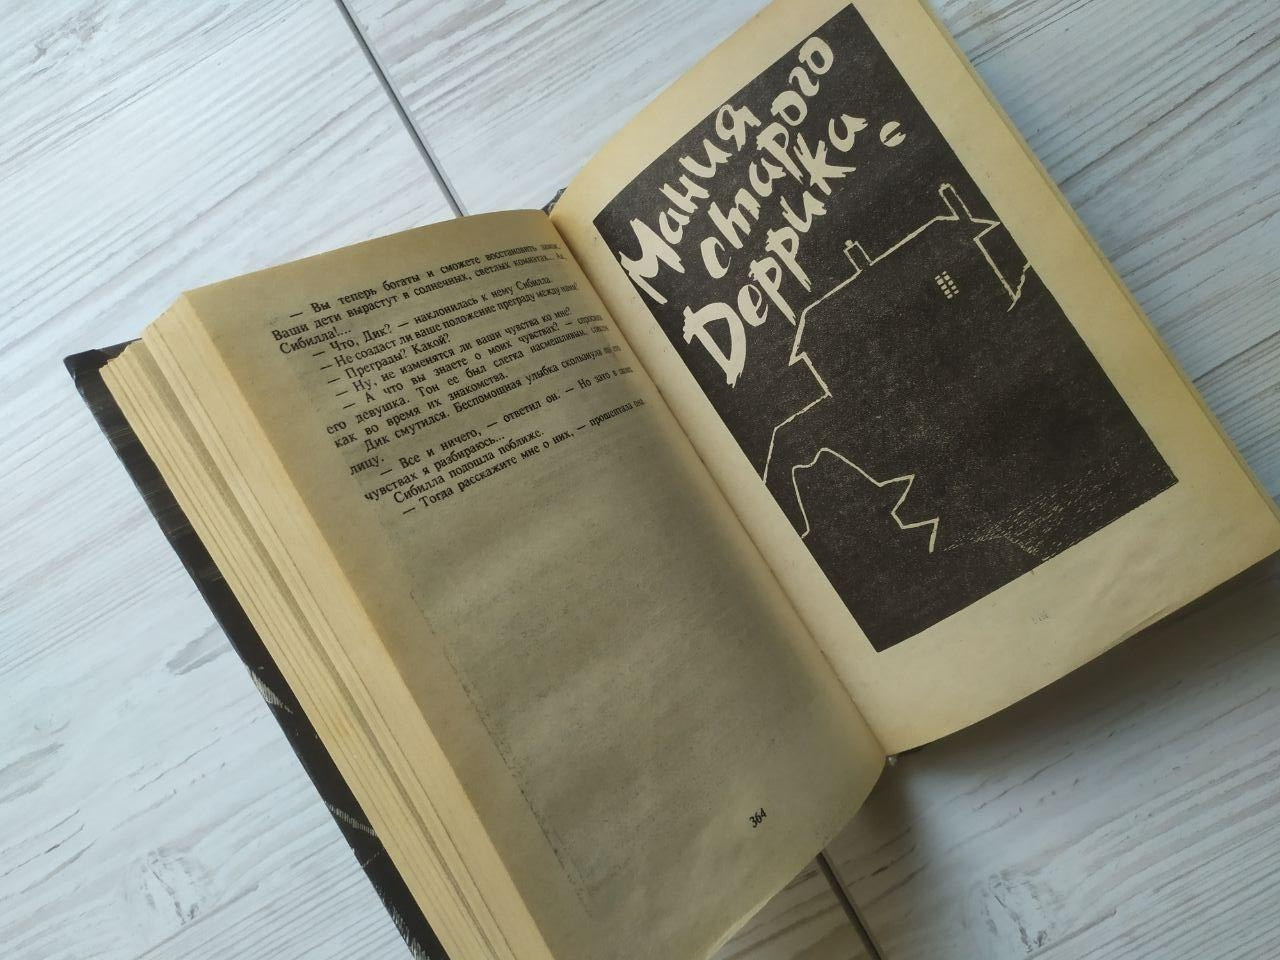 — Вы теперь богаты и сможете восстановить замок.
Ваши дети вырастут в солнечных, светлых комнатах... Ах,
Сибилла!...
— Что, Дик? — наклонилась к нему Сибилла.
— Не создаст ли ваше положение преграду между нами?
— Преграды? Какой?
— Ну, не изменятся ли ваши чувства ко мне?
— А что вы знаете о моих чувствах? — спросила
его девушка. Тон ее был слегка насмешливым, совсем
как во время их знакомства.
Дик смутился. Беспомощная улыбка скользнула по его
лицу.
— Все и ничего, — ответил он. — Но зато в своих
чувствах я разбираюсь...
Сибилла подошла поближе.
— Тогда расскажите мне о них, — прошептала она.
364
Мания
старого
Деррика